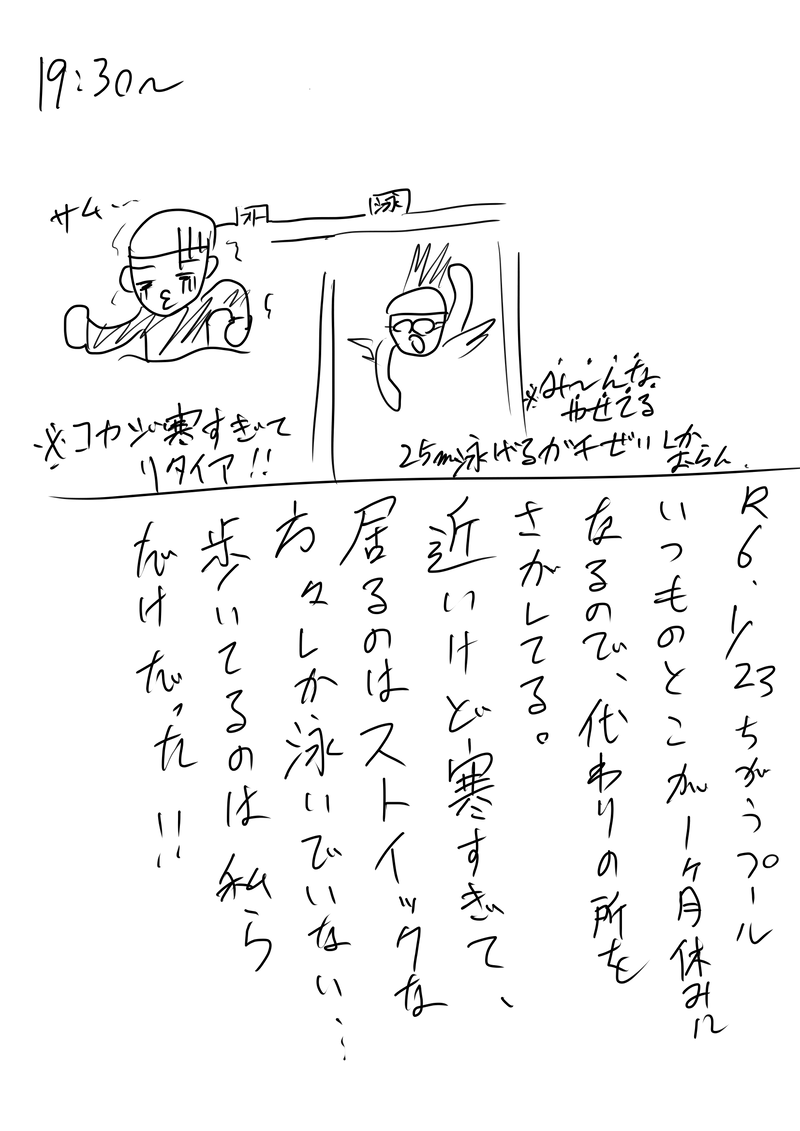 19:30〜
サムー…
歩
泳
※コカジ寒すぎて
リタイア!!
※み〜んな
やせてる
25m泳げるガチぜいしか
おらん.
R6.1/23ちがうプール
いつものとこが1ヶ月休みに
なるので、代わりの所を
さがしてる。
近いけど寒すぎて、
居るのはストイックな
方々しか泳いでいない…
歩いてるのは私ら
だけだった!!